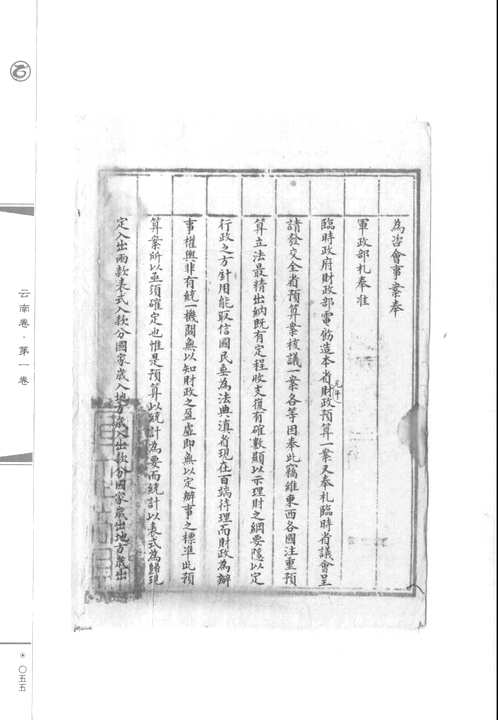 為咨會事案奉
軍政部札奉准
臨時政府財政部電飭造本省元年財政預算一案又奉札臨時省議會呈
請發交全省預算案核議一案各等因奉此竊維東西各國注重預
算立法最精出納既有定程收支復有確數顯以示理財之綱要隱以定
行政之方針用能取信國民垂為法典滇省現在百端待理而財政為辦
事權輿非有統一機關無以知財政之盈虛即無以定辦事之標準此預
算案所以亟須確定也惟是預算以統計為要而統計以表式為歸現
定入出兩款表式入款分國家歲入地方歲入出款分國家歲出地方歲出
云南卷·第一卷
*〇五五